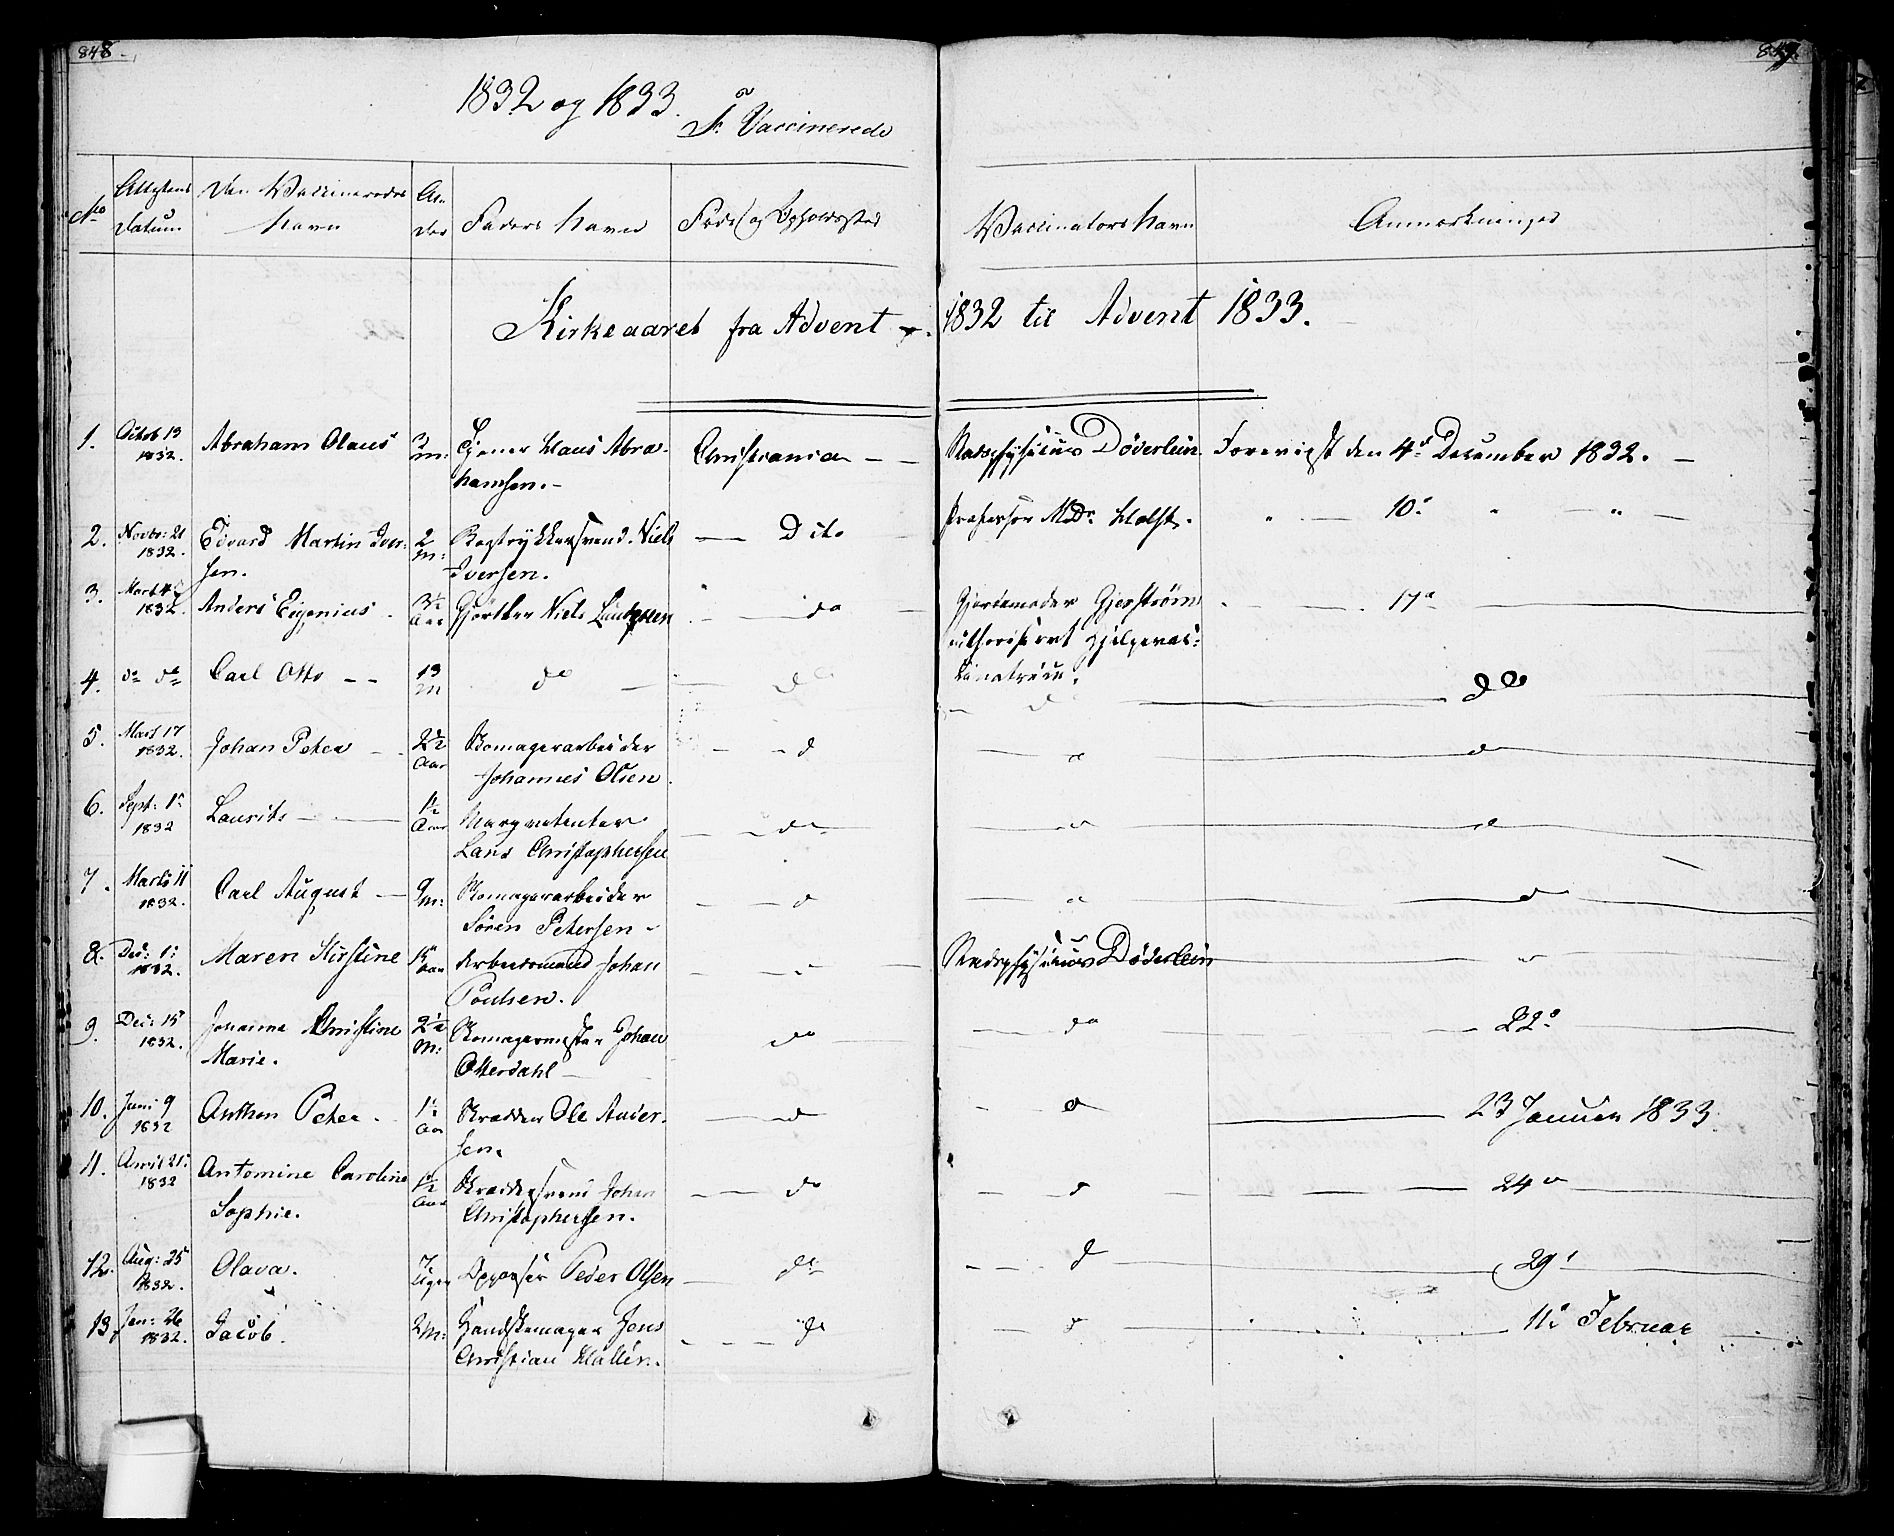 848.
849.
1832 og 1833.
F. Vaccinerede
No
Attestens Datum
Den Vaccineredes Havn
Al-der
Faders Navn
Føde og Opholdssted
Vaccinators Navn
Anmærkninger
Kirkeaaret fra Advent 1832 til Advent 1833.
1. Octob 13 1832. Abraham Olaus 3 m: Claus Abrahamsen. Christiania Stadsphysicus Døderlein Forevist den 4de December 1832.
2. Novbr: 21 1832. Edvard Martin Iversen. 2 m: Bogtrykkersvend Niels Iversen. Dito Professor Holst. 10
3. 1832. Anders Eugenius 3½ Aar Gjørtler Niels Lundgreen do Gjordemoder Gjerstrøm authoriseret Hjelpevaccinatrice. 17
4. do do Carl Otto 13 m do do do do
5. Mart 17 1832. Johan Peter 2½ Aar Skomagerarbeider Johannes Olsen d d
6. Sept: 1 1832 Laurits 1½ Aar Marqvetenter Lars Christophersen do d
7. Marts 11 1832. Carl August 9 m: Skomagerarbeider Søren Petersen d d
8. Dec: 1: 1832. Maren Kirstine 15 Aar Arbeidsmand Johan Poulsen. Stadsphysicus Døderlein
9. Dec: 15 1832. Johanna Christine Marie. 2½ M: Skomagermester Johan Otterdahl do do 22
10. Juni 9 1832 Anthon Peter. 1½ Aar Skrædder Ole Andersen. d d 23 Januar 1833.
11. April 21: 1832 Antomine Caroline Sophie. 1½ Aar Skræddersvend Johan Christophersen. do d 24
12. Aug: 25 1832. Olava. 7 Uger Opposer Peder Olsen do d 29
13. Jan: 26 1832. Jacob. 2 M: Handskemager Jens Christian Møller. do d 11 Februar